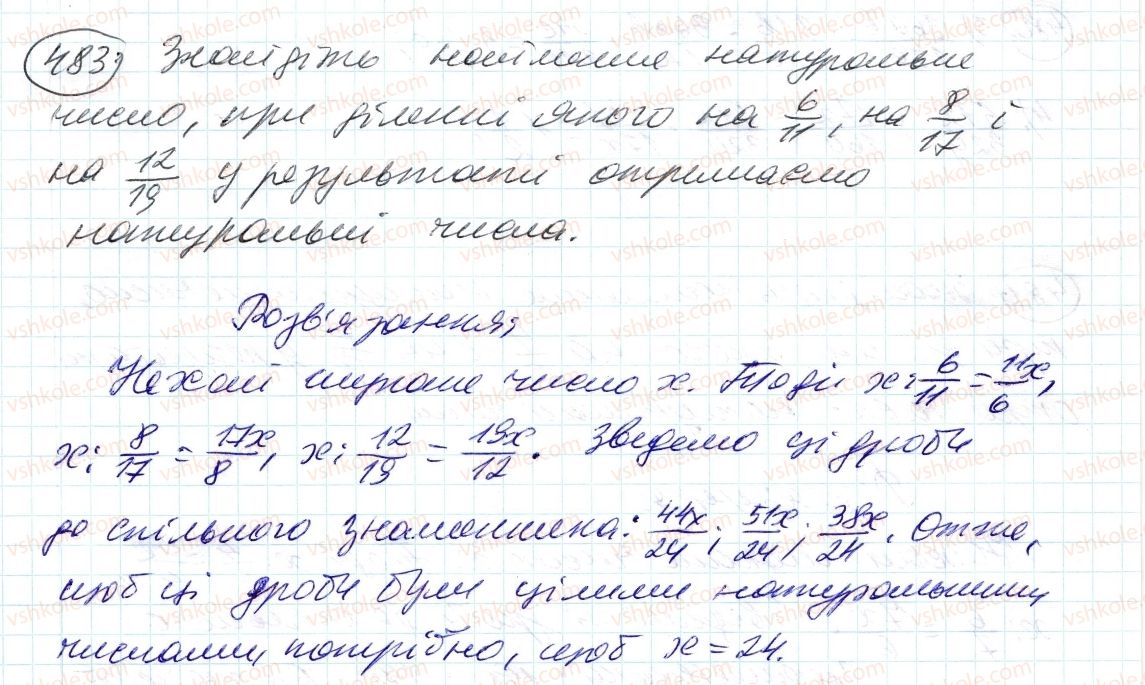 483) Знайдіть найменше натуральне
число, при діленні якого на 6/11, на 8/17 і
на 12/19 у результаті отримаємо
натуральні числа.
Розв'язання:
Нехай шукане число x. Тоді x : 6/11 = 11x/6,
x : 8/17 = 17x/8, x : 12/19 = 19x/12. Зведемо ці дроби
до спільного знаменника: 44x/24; 51x/24; 38x/24. Отже,
щоб ці дроби були цілими натуральними
числами, потрібно, щоб x = 24.